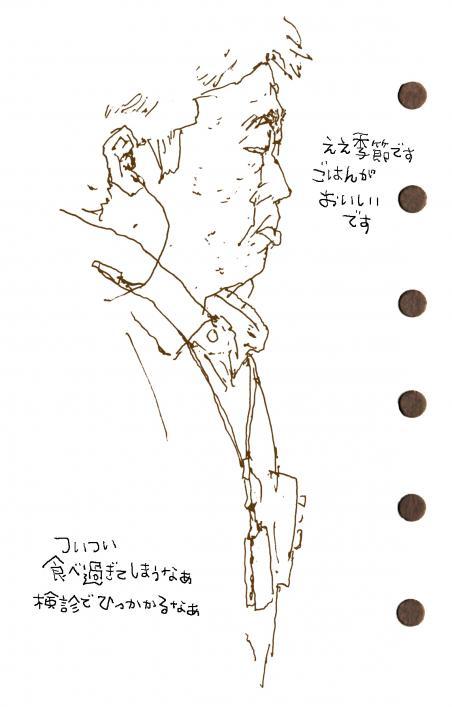 ええ季節です
ごはんが
おいしい
です
ついつい
食べ過ぎてしまうなぁ
検診でひっかかるなぁ